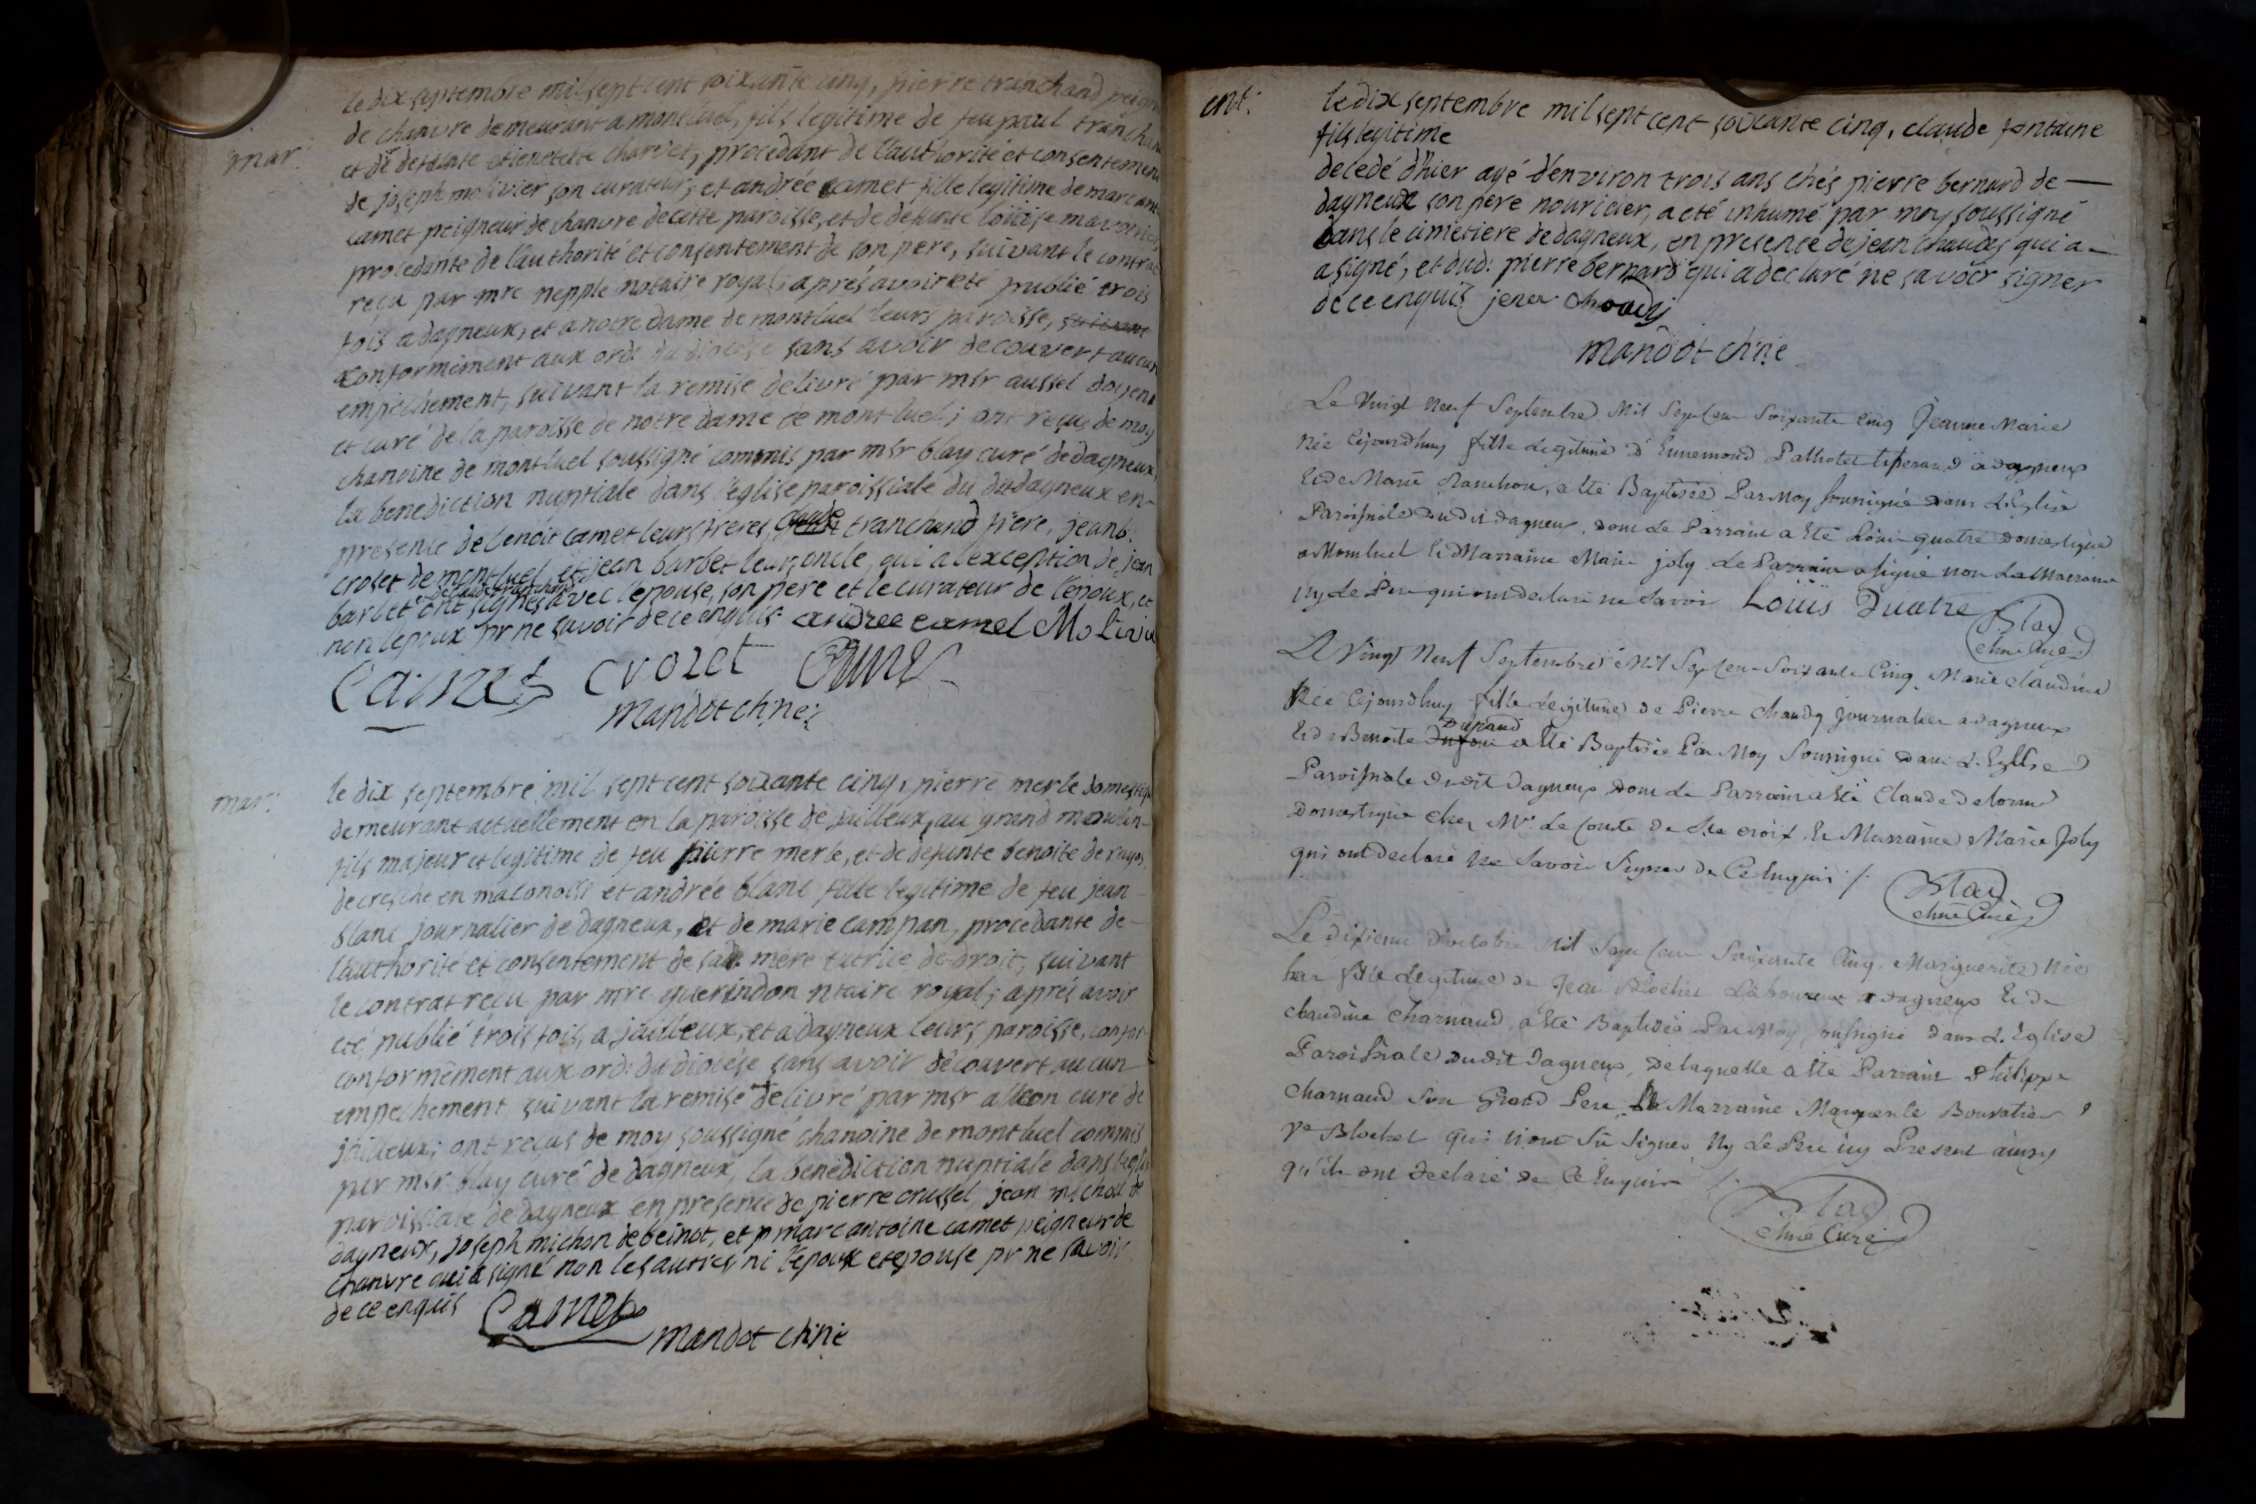 mar:
le dix septembre mil sept cent soixante cinq, pierre tranchand peign
de chanvre demeurant a montluel, fils legitime de feu paul tranchan
et de defunte etienette charvet, procedant de l'authorité et consentement
de joseph molivier son curateur; et andrée camet fille legitime de marc ant
camet peigneur de chanvre de cette paroisse, et de defunte loüise
procedante de l'authorité et consentement de son pere, suivant le contrat
reçu par mre nepple notaire royal; aprés avoir été publié trois
fois a dagneux, et a notre dame de montluel leurs paroisse, suivant
conformement aux ord: du diocése sans avoir decouvert aucun
empechement, suivant la remise delivré par msr aussel doyen
et curé de la paroisse de notre dame de montluel; ont reçus de moy
chanoine de montluel soussigné commis par msr blay curé de dagneux,
la benediction nuptiale dans l'eglise paroissiale du dit dagneux en-
presence de benoit camet leurs freres, claude tranchand frere, jean b.
crozet de montluel et jean barbet leur oncle, qui a l'exception de jean
barbet ont signés avec l'epouse, son pere et le curateur de l'epoux, et
non l'epoux pr ne savoir de ce enquis andree camel Molivie
Camet crozet Camet
Mandot chne:
mar:
le dix septembre mil sept cent soixante cinq, pierre merle domestiq
demeurant actuellement en la paroisse de jailleux, au grand moulin-
fils majeur et legitime de feu pierre merle, et de defunte benoite
de cresche en maconois et andrée blanc fille legitime de feu jean-
blanc journalier de dagneux, et de marie campan, procedante de-
l'authorité et consentement de sa mere tutrice de droit, suivant
le contrat reçu par mre guerindon ntaire royal; aprés avoir
été publié trois fois, a jailleux, et a dagneux leurs paroisse, confor-
conformement aux ord: du diocése sans avoir découvert aucun-
empechement suivant la remise delivré par msr alleon curé de
jailleux; ont reçus de moy soussigné chanoine de montluel commis
par msr blay curé de dagneux, la benediction nuptiale dans l'eglis
paroissiale de dagneux en presence de pierre crussel, jean michon de
dagneux, joseph michon de beinot, et marc antoine camet peigneur de
chanvre qui a signé non les autres ni l'epoux et epouse pr ne savoir
de ce enquis Camet
Mandot chne
ent:
le dix septembre mil sept cent soixante cinq, claude fontaine
fils legitime
decedé d'hier agé d'environ trois ans chés pierre bernard de —
dagneux son pere nouricier, a eté inhumé par moy soussigné
dans le cimetiere de dagneux, en presence de jean chaudy qui a-
a signé, et dud: pierre bernard qui a declaré ne savoir signer
de ce enquis jean chaudy
Mandot chne
Le Vingt Neuf Septembre Mil Sept Cent Soixante Cinq Jeanne Marie
Née Cejourdhuy fille Legitime d'Ennemond Palhotet a dagneux
Et de Marie Ranchon, a Eté Baptisée Par Moy Soussigné dans L'Eglise
Paroissiale Dudit dagneux, dont Le Parrain a Eté Loüis quatre domestique
a Montluel Et Marraine Marie joly Le Parrain a signé non La Marraine
Ny Le Pere qui ont declaré ne Savoir Loüis Quatre Blay
chne Curé
Le Vingt Neuf Septembre Mil Sept Cent Soixante Cinq, Marie claudine
Née Cejourdhuy fille Legitime de Pierre chaudy journalier a dagneux
Durand
Et de Benoite a Eté Baptisée Par Moy Soussigné dans L'Eglise
Paroissiale Dudit Dagneux dont Le Parrain a Eté Claude Delorme
Domestique chez Mr. Le Comte de Ste croix Et Marraine Marie Joly
qui ont declaré Ne Savoir Signer de Ce Enquis /.
Blay
chne Curé
Le dixieme d'octobre Mil Sept Cent Soixante Cinq, Marguerite Née
hier fille Legitime de Jean Blochet Laboureur a Dagneux Et de
claudine charnaud, a Eté Baptisée Par Moy soussigné dans L'Eglise
Paroissiale dudit Dagneux, de laquelle a Eté Parrain Philippe
Charnaud Son Grand Pere Et Marraine Marguerite Bouvatier
ve Blochet qui n'ont Sü Signer Ny Le Pere icy Present ainsy
qu'ils ont declaré de Ce Enquis /.
Blay
chne Curé